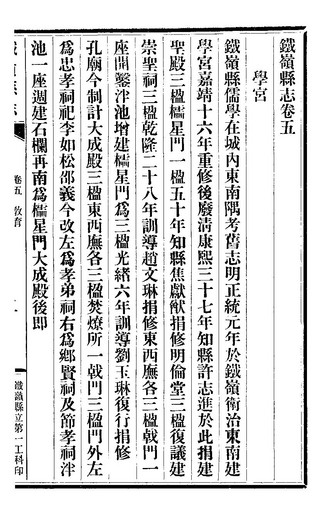 鐵嶺縣志卷五
學宮
鐵嶺縣儒學在城內東南隅考舊志明正統元年於鐵嶺衛治東南建
學宮嘉靖十六年重修後廢清康熙三十七年知縣許志進於此捐建
聖殿三楹櫺星門一楹五十年知縣焦獻猷捐修明倫堂三楹復議建
崇聖祠三楹乾隆二十八年訓導趙文琳捐修東西廡各三楹戟門一
座開鑿泮池增建櫺星門爲三楹光緒六年訓導劉玉琳復行捐修
孔廟今制計大成殿三楹東西廡各三楹焚燎所一戟門三楹門外左
爲忠孝祠祀李如松邵義今改左爲孝弟祠右爲鄉賢祠及節孝祠泮
池一座週建石欄再南爲櫺星門大成殿後即
卷五 教育
一
鐵嶺縣立第一工科印